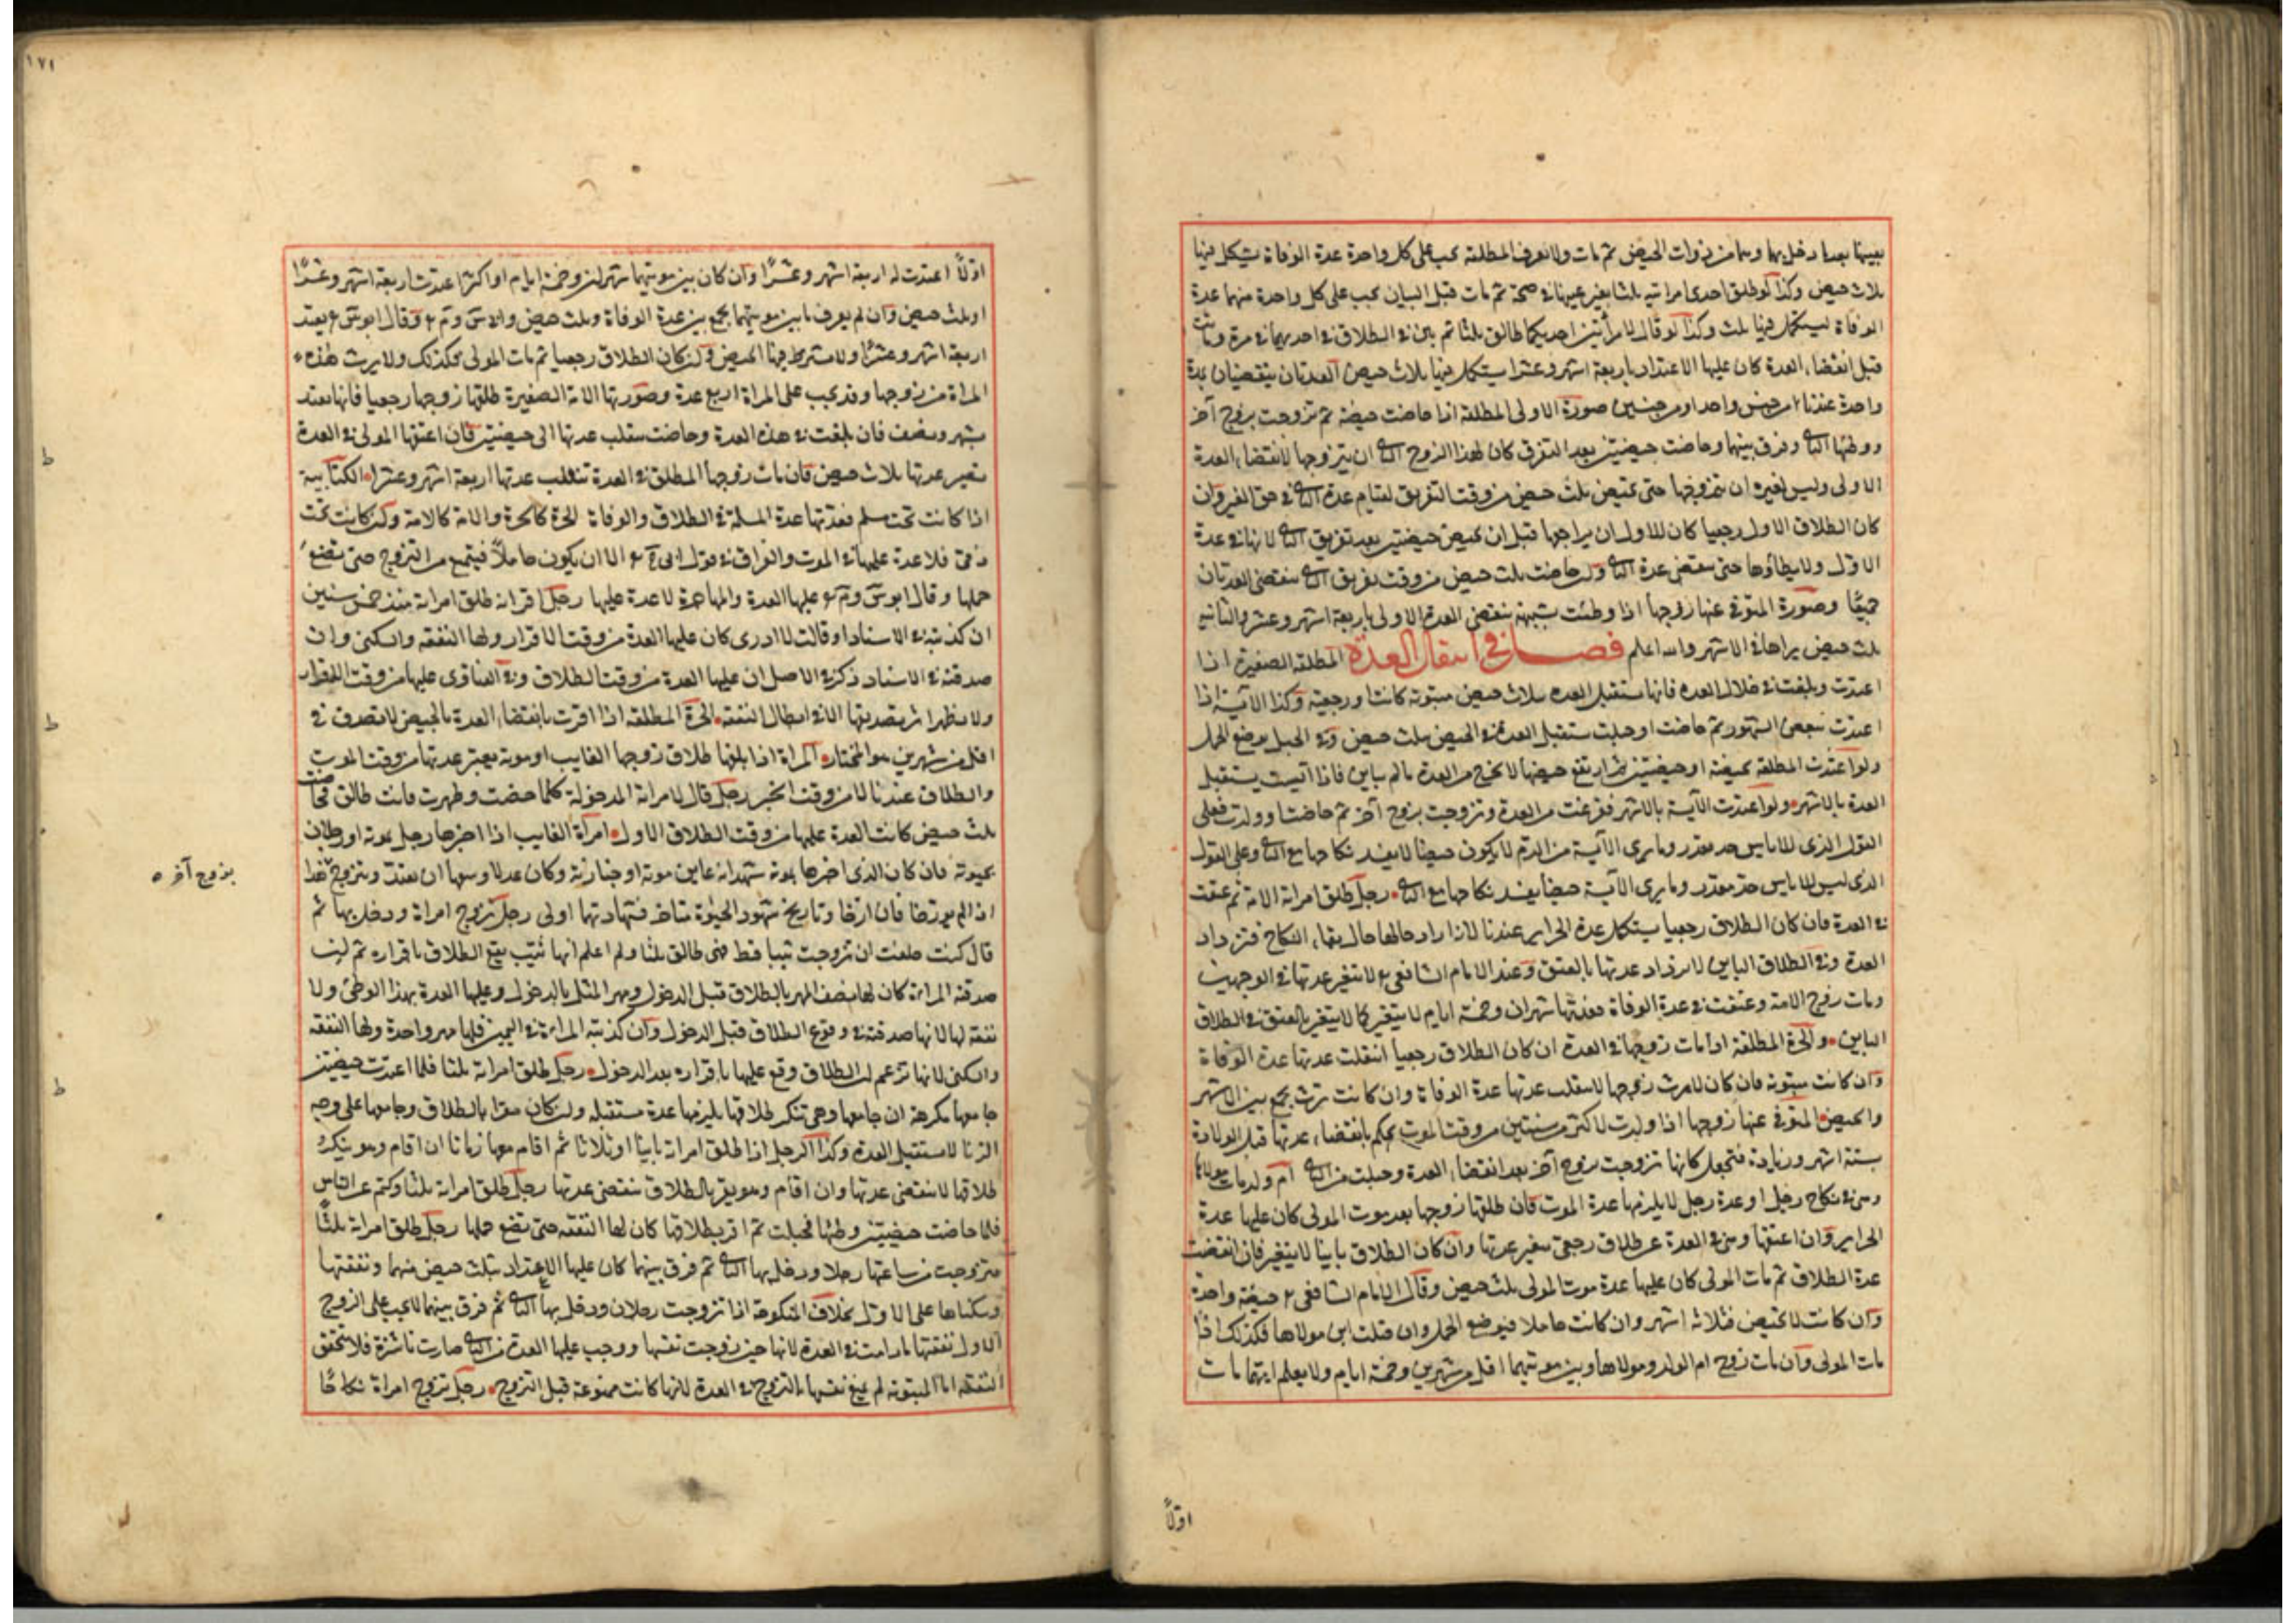 بعينها بعدما دخل بهما وهما من ذوات الحيض ثم مات ولا تعرف المطلقة يجب على كل واحدة عدة الوفاة يستكمل فيها
ثلاث حيض وكذا لو طلق احدى امراتيه ثلثا بغير عينها في صحته ثم مات قبل البيان يجب على كل واحدة منهما عدة
الوفاة تستكمل فيها ثلث وكذا لو قال لامرأتين احديكما طالق ثلثا ثم بين الطلاق في احديهما في مرة ومات
قبل انقضاء العدة كان عليها الاعتداد باربعة اشهر وعشرا يستكمل فيها ثلاث حيض العدتان ينقضيان بمدة
واحدة عندنا من جنس واحد او من جنسين صورة الاولى المطلقة اذا حاضت حيضة ثم تزوجت بزوج آخر
ووطئها الثاني وفرق بينهما وحاضت حيضتين بعد التفرق كان لهذا الزوج الثاني ان يتزوجها لانقضاء العدة
الاولى وليس لغيره ان يتزوجها حتى تحيض ثلث حيض من وقت التفريق لقيام عدة الثاني في حق الغير وان
كان الطلاق الاول رجعيا كان للاول ان يراجعها قبل ان تحيض حيضتين بعد تفريق الثاني لانها في عدة
الاول ولا يطأوها حتى تنقضي عدة الثاني وان حاضت ثلث حيض من وقت تفريق الثاني تنقضي العدتان
جميعًا وصورة المتوفى عنها زوجها اذا وطئت بشبهة تنقضي العدة الاولى باربعة اشهر وعشر والثانية
بثلث حيض يراها في الاشهر والله اعلم فصل في انتقال العدة المطلقة الصغيرة اذا
اعتدت وبلغت في خلال العده فانها تستقبل العده بثلاث حيض مبتوتة كانت او رجعية وكذا الآيسة اذا
اعتدت ببعض الشهور ثم حاضت او حبلت تستقبل العدة في الحيض بثلث حيض وفي الحبل بوضع الحمل
ولو اعتدت المطلقة بحيضة او حيضتين ثم ارتفع حيضها لا تخرج من العدة ما لم يباين فاذا آيست يستقبل
العدة بالاشهر ولو اعتدت الآيسة بالاشهر ففرغت من العدة وتزوجت بزوج آخر ثم حاضت او ولدت فعلى
القول الذي للاياس حد مقدر وما يرى الآيسة من الدم لا يكون حيضا لا يفسد نكاحها مع الثاني وعلى القول
الذي ليس للاياس حد مقدر وما يرى الآيسة حيضا يفسد نكاحها مع الثاني رجل طلق امراته الامة ثم عتقت
في العدة فان كان الطلاق رجعيا يستكمل عدة الحراير عندنا لازدياد حالها حال بقاء النكاح فتزداد
العدة وفي الطلاق الباين لا تزداد عدتها بالعتق وعند الامام الشافعي لا تتغير عدتها في الوجهين
ومات زوج الامة وعتقت في عدة الوفاة فعدتها شهران وخمسة ايام لا يتغير كما لا يتغير بالعتق في الطلاق
الباين والحرة المطلقة اذا مات زوجها في العدة ان كان الطلاق رجعيا انتقلت عدتها عدة الوفاة
وان كانت مبتوتة فان كان لا ترث زوجها لا تنقلب عدتها عدة الوفاة وان كانت ترث يجمع بين الاشهر
والحيض المتوفى عنها زوجها اذا ولدت لاكثر من سنتين من وقت الموت يحكم بانقضاء عدتها قبل الولادة
بستة اشهر وزيادة فتجعل كانها تزوجت بزوج آخر بعد انقضاء العدة وحبلت من الثاني ام ولد مات مولاها
وهي في نكاح رجل او عدة رجل لا يلزمها عدة الموت فان طلقها زوجها بعد موت المولى كان عليها عدة
الحراير وان اعتقها وهي في العدة عن طلاق رجعي تتغير عدتها وان كان الطلاق باينا لا يتغير فان انقضت
عدة الطلاق ثم مات المولى كان عليها عدة موت المولى بثلث حيض وقال الامام الشافعي حيضة واحدة
وان كانت لا تحيض فثلاثة اشهر وان كانت حاملا فبوضع الحمل وان قبلت ابن مولاها فكذلك اذا
مات المولى وان مات زوج ام الولد ومولاها وبين موتيهما اقل من شهرين وخمسة ايام ولا يعلم ايهما مات
اولًا
١٧١
اولًا اعتدت له اربعة اشهر وعشرًا وان كان بين موتيهما شهران وخمسة ايام او اكثر اعتدت اربعة اشهر وعشرًا
او ثلث حيض وان لم يعرف ما بين موتيهما يجمع بين عدة الوفاة وثلث حيض وقال ابو يعتد
اربعة اشهر وعشرًا ولا يشترط فيها الحيض وان كان الطلاق رجعيا ثم مات المولى فكذلك ولا يرث هذه
المراة من زوجها وقد يجب على المراة اربع عدة وصورتها الامة الصغيرة طلقها زوجها رجعيا فانها تعتد
بشهر ونصف فان بلغت في هذه العدة وحاضت تنقلب عدتها الى حيضتين فان اعتقها المولى في العدة
تصير عدتها ثلاث حيض فان مات زوجها المطلق في العدة تنقلب عدتها اربعة اشهر وعشرا الكتابية
اذا كانت تحت مسلم فعدتها عدة المسلمة في الطلاق والوفاة الحرة كالحرة والامة كالامة وان كانت تحت
ذمي فلا عدة عليها في الموت والفراق في قول ابي الا ان يكون حاملًا فيمنع من التزوج حتى تضع
حملها وقال ابو عليها العدة والمهاجرة لا عدة عليها رجل اقر انه طلق امراته منذ خمس سنين
ان كذبته في الاسناد او قالت لا ادرى كان عليها العدة من وقت الاقرار ولها النفقه والسكنى وان
صدقته في الاسناد ذكر في الاصل ان عليها العدة من وقت الطلاق وفي الفتاوى عليها من وقت الاقرار
ولا يظهر اثر تصديقها الا في ابطال النفقه الحرة المطلقة اذا اقرت بانقضاء العدة بالحيض لا تصدق في
اقل من شهرين هو المختار المراة اذا بلغها طلاق زوجها الغايب او موته يعتبر عدتها من وقت الموت
والطلاق عندنا لا من وقت الخبر رجل قال لامراته المدخولة كلما حضت وطهرت فانت طالق فحاضت
ثلث حيض كانت العدة عليها من وقت الطلاق الاول امرأة الغايب اذا اخبرها رجل بموته او رجلان
بحيوته فان كان الذى اخبرها بموته شهد انه عاين موته او جنازته وكان عدلا وسعها ان تعتد وتتزوج هذا
بزوج آخر ٥
اذا لم يورخا فان ارخا وتاريخ شهود الحيوة متاخر فشهادتهما اولى رجل تزوج امراة ودخل بها ثم
قال كنت حلفت ان تزوجت ثيبا قط فهي طالق ثلثا ولم اعلم انها ثيب يقع الطلاق باقراره ثم ان
صدقته المراة كان لها نصف المهر بالطلاق قبل الدخول ومهر المثل بالدخول وعليها العدة بهذا الوطئ ولا
نفقه لها لانها صدقته في وقوع الطلاق قبل الدخول وان كذبته المراة في اليمين فلها مهر واحدة ولها النفقه
والسكنى لانها تزعم ان الطلاق وقع عليها باقراره بعد الدخول رجل طلق امراته ثلثا فلما اعتدت حيضتين
جامعها مكرهة ان جامعها وهي تنكر طلاقها يلزمها عدة مستقبله وان كان مقرا بالطلاق وجامعها على وجه
الزنا لا تستقبل العدة وكذا الرجل اذا طلق امراته باينا او ثلاثا ثم اقام معها زمانا ان اقام وهو ينكر
طلاقها لا تنقضي عدتها وان اقام وهو يقر بالطلاق تنقضي عدتها رجل طلق امراته ثلثا وكتم عن الناس
فلما حاضت حيضتين وطئها فحبلت ثم اقر بطلاقها كان لها النفقه حتى تضع حملها رجل طلق امراته ثلثًا
فتزوجت من ساعتها رجلا ودخل بها الثاني ثم فرق بينهما كان عليها الاعتداد بثلث حيض منهما ونفقتها
وسكناها على الاول بخلاف المنكوحة اذا تزوجت رجلا ودخل بها الثاني ثم فرق بينهما لا يجب على الزوج
الاول نفقتها ما دامت في العدة لانها حين زوجت نفسها ووجب عليها العدة من الثاني صارت ناشزة فلا تستحق
النفقه اما المبتوتة لم تمنع نفسها بالتزوج في العدة لانها كانت ممنوعة قبل التزوج رجل تزوج امراة نكاحًا